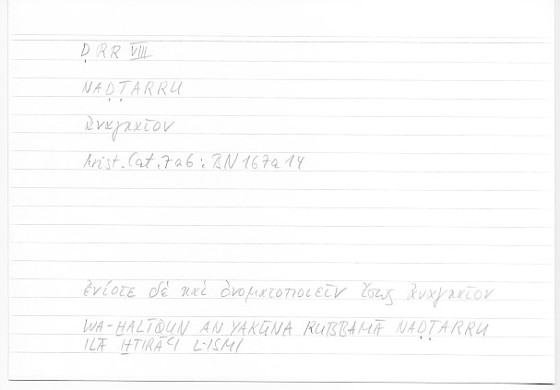 ḌRR VIII
NAḌṬARRU
ἀναγκαῖον
Arist. Cat. 7a6 : BN 167a14
ἐνίοτε δὲ καὶ ὀνοματοποιεῖν ἴσως ἀναγκαῖον
WA-ḪALĪQUN AN YAKŪNA RUBBAMĀ NAḌṬARRU
ILĀ ḪTIRĀʿI L-ISMI